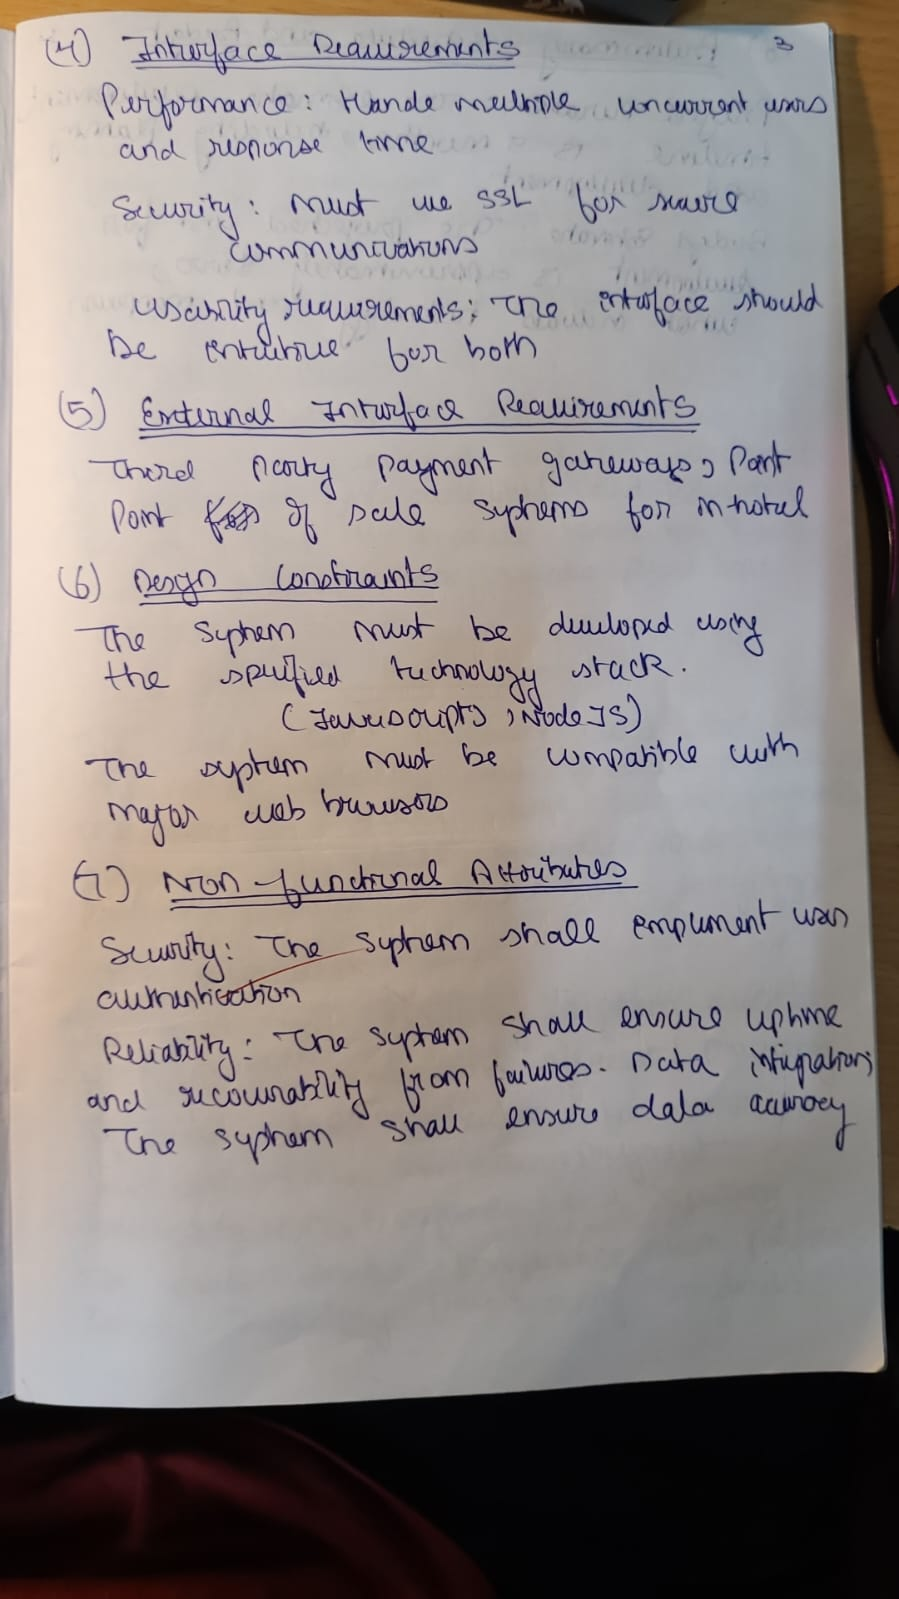 3
(4) Interface Requirements
Performance: Hande multiple concurrent users
and response time
Security: Must use SSL for secure
communications
Usability requirements: The interface should
be intuitive for both
(5) External Interface Requirements
Third Party Payment gateways, Point
Point of sale systems for in-hotel
(6) Design Constraints
The system must be developed using
the specified technology stack.
(Javascripts, Node JS)
The system must be compatible with
major web browsers
(7) Non-functional Attributes
Security: The system shall implement user
authentication
Reliability: The system shall ensure uptime
and recoverability from failures. Data integration;
The system shall ensure data accuracy